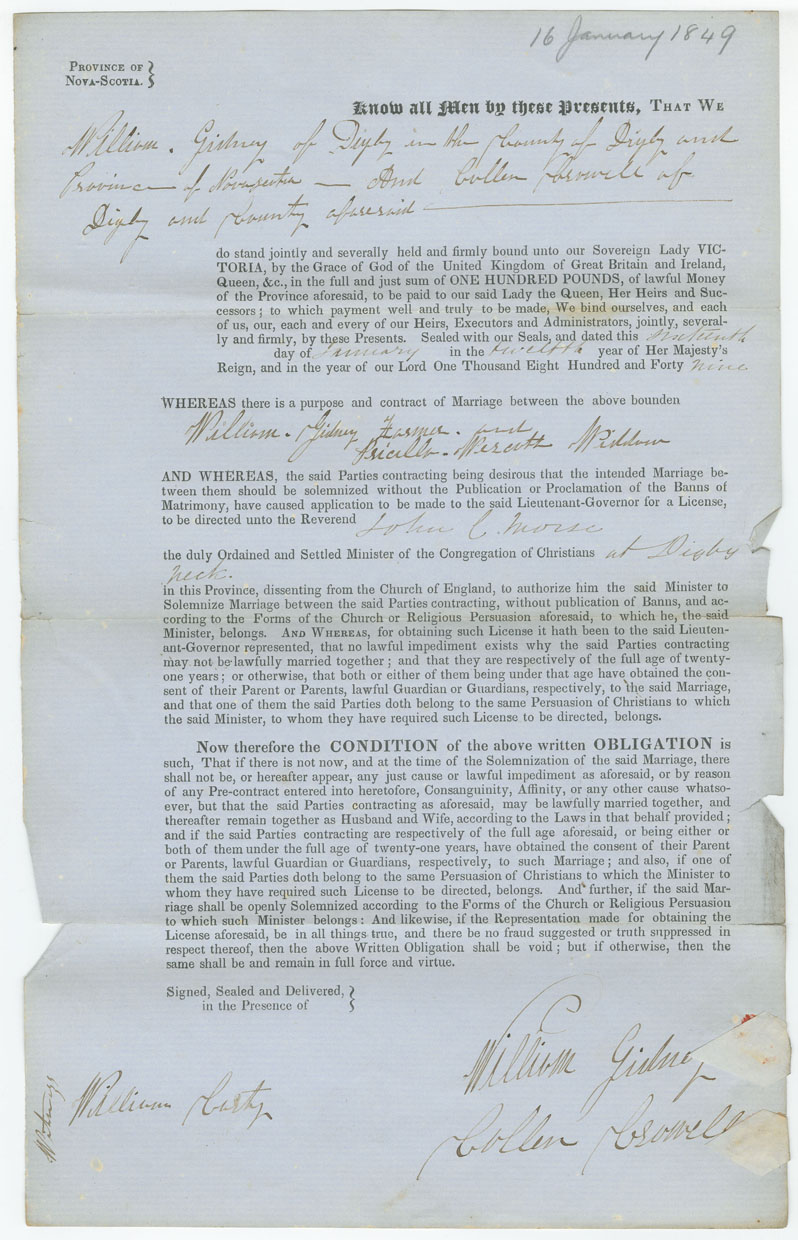 16 January 1849
PROVINCE OF
NOVA-SCOTIA.
Know all Men by these Presents, THAT WE
William. Gidney of Digby in the County of Digby and
Province of Novascotia — And Collen Crowell of
Digby and County aforesaid
do stand jointly and severally held and firmly bound unto our Sovereign Lady VIC-
TORIA, by the Grace of God of the United Kingdom of Great Britain and Ireland,
Queen, &c., in the full and just sum of ONE HUNDRED POUNDS, of lawful Money
of the Province aforesaid, to be paid to our said Lady the Queen, Her Heirs and Suc-
cessors; to which payment well and truly to be made, We bind ourselves, and each
of us, our, each and every of our Heirs, Executors and Administrators, jointly, several-
ly and firmly, by these Presents. Sealed with our Seals, and dated this sixteenth
day of January in the twelfth year of Her Majesty's
Reign, and in the year of our Lord One Thousand Eight Hundred and Forty nine
WHEREAS there is a purpose and contract of Marriage between the above bounden
William. Gidney Farmer. and
Pricilla Widdow
AND WHEREAS, the said Parties contracting being desirous that the intended Marriage be-
tween them should be solemnized without the Publication or Proclamation of the Banns of
Matrimony, have caused application to be made to the said Lieutenant-Governor for a License,
to be directed unto the Reverend John C Morse
the duly Ordained and Settled Minister of the Congregation of Christians at Digby
Neck.
in this Province, dissenting from the Church of England, to authorize him the said Minister to
Solemnize Marriage between the said Parties contracting, without publication of Banns, and ac-
cording to the Forms of the Church or Religious Persuasion aforesaid, to which he, the said
Minister, belongs. AND WHEREAS, for obtaining such License it hath been to the said Lieuten-
ant-Governor represented, that no lawful impediment exists why the said Parties contracting
may not be lawfully married together; and that they are respectively of the full age of twenty-
one years; or otherwise, that both or either of them being under that age have obtained the con-
sent of their Parent or Parents, lawful Guardian or Guardians, respectively, to the said Marriage,
and that one of them the said Parties doth belong to the same Persuasion of Christians to which
the said Minister, to whom they have required such License to be directed, belongs.
Now therefore the CONDITION of the above written OBLIGATION is
such, That if there is not now, and at the time of the Solemnization of the said Marriage, there
shall not be, or hereafter appear, any just cause or lawful impediment as aforesaid, or by reason
of any Pre-contract entered into heretofore, Consanguinity, Affinity, or any other cause whatso-
ever, but that the said Parties contracting as aforesaid, may be lawfully married together, and
thereafter remain together as Husband and Wife, according to the Laws in that behalf provided;
and if the said Parties contracting are respectively of the full age aforesaid, or being either or
both of them under the full age of twenty-one years, have obtained the consent of their Parent
or Parents, lawful Guardian or Guardians, respectively, to such Marriage; and also, if one of
them the said Parties doth belong to the same Persuasion of Christians to which the Minister to
whom they have required such License to be directed, belongs. And further, if the said Mar-
riage shall be openly Solemnized according to the Forms of the Church or Religious Persuasion
to which such Minister belongs: And likewise, if the Representation made for obtaining the
License aforesaid, be in all things true, and there be no fraud suggested or truth suppressed in
respect thereof, then the above Written Obligation shall be void; but if otherwise, then the
same shall be and remain in full force and virtue.
Signed, Sealed and Delivered,
in the Presence of
William Gidney
William
Collen Crowell